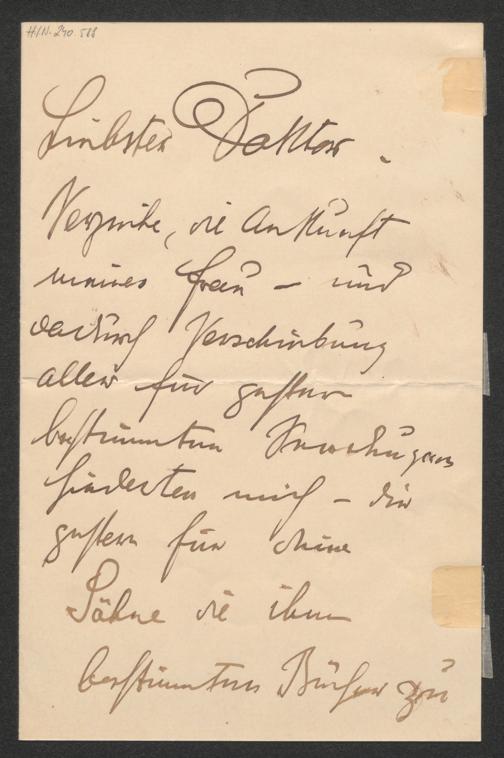 H.I.N. 240.588
Liebster Doktor.
Verzeihe, die Ankunft
meiner Frau – und
dadurch Verschiebung
aller für gestern
bestimmten
hinderten mich – dir
gestern für deine
Söhne die ihnen
bestimmten Bücher zu